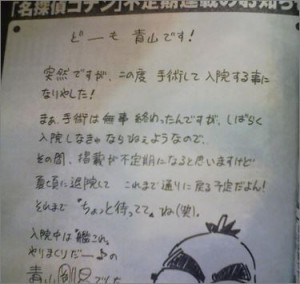 「名探偵コナン」不定期連載のお知ら
どーも 青山です!
突然ですが、この度 手術して入院する事に
なりやした!
まぁ、手術は無事 終わったんですが、しばらく
入院しなきゃならねぇようなので、
その間、掲載が不定期になると思いますけど
夏頃に退院して これまで通りに戻る予定だよん!
それまで “ちょっと待ってて„ね(笑)。
入院中は“艦これ„
やりまくりだー♪の
青山剛昌でした